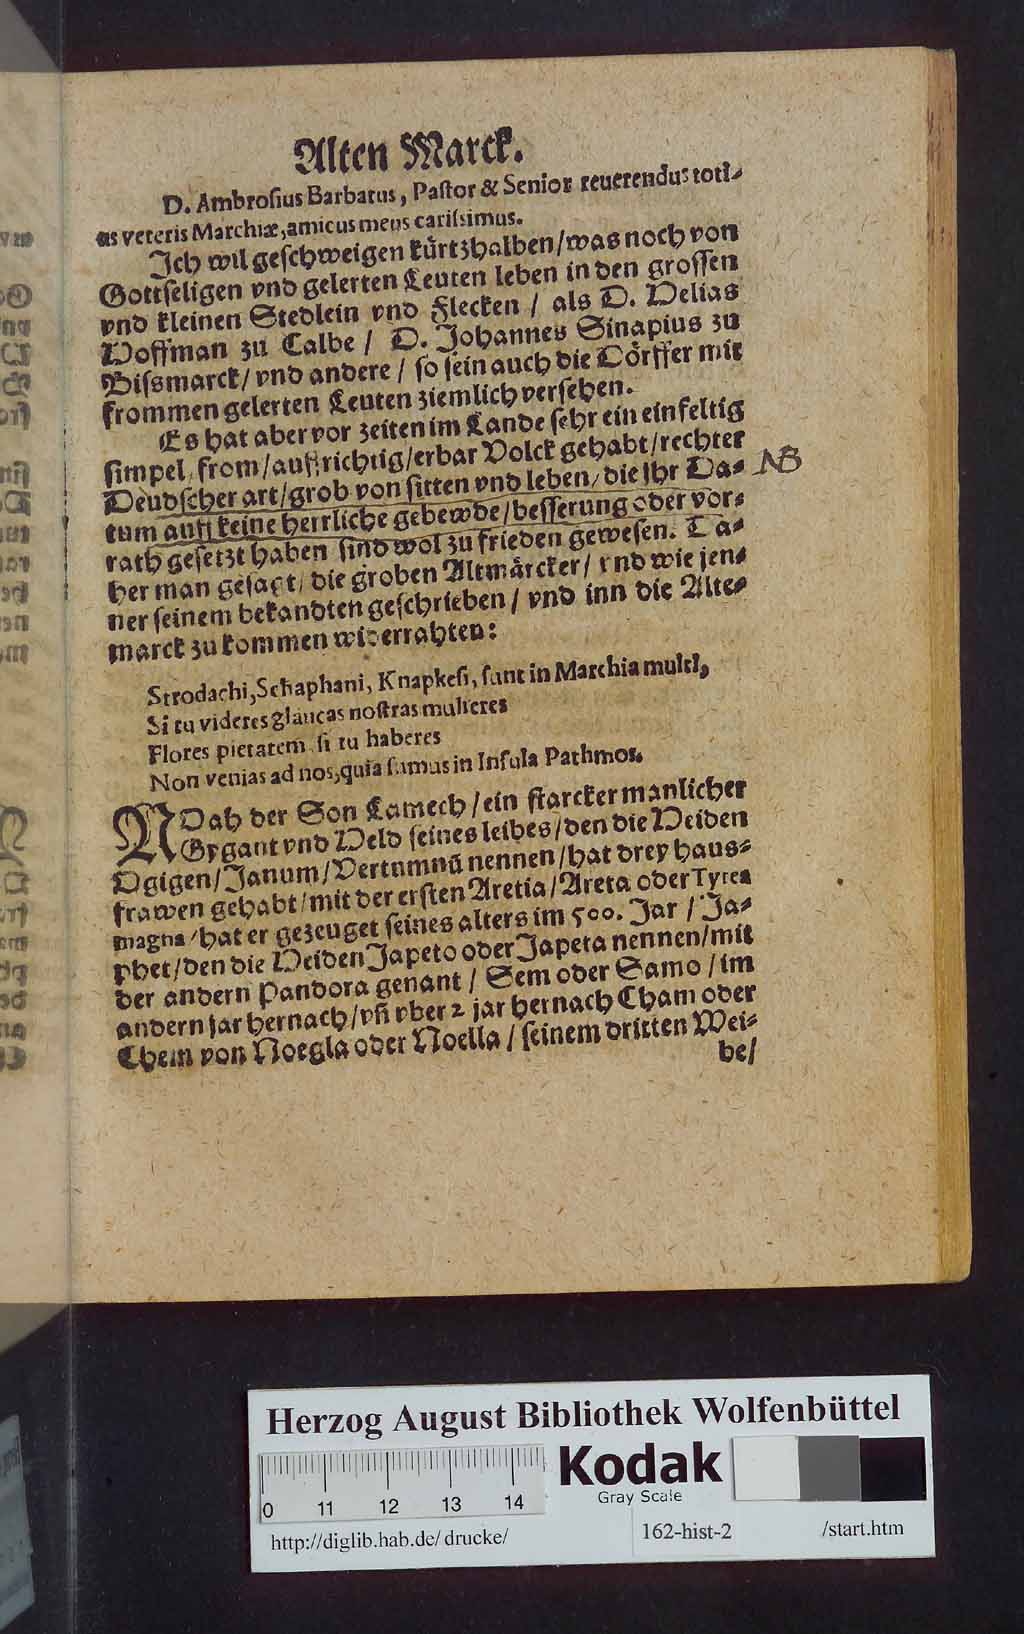 Alten Marck.
D. Ambrosius Barbatus, Pastor & Senior reuerendus toti-
us veteris Marchiæ, amicus meus carissimus.
Ich wil geschweigen kürtzhalben/was noch von
Gottseligen vnd gelerten Leuten leben in den grossen
vnd kleinen Stedlein vnd Flecken / als D. Helias
Hoffman zu Calbe / D. Johannes Sinapius zu
Bismarck/ vnd andere / so sein auch die Dörffer mit
frommen gelerten Leuten ziemlich versehen.
Es hat aber vor zeiten im Lande sehr ein einfeltig
simpel, from/auffrichtig/erbar Volck gehabt/rechter
Deudscher art/grob von sitten vnd leben/die jhr Da- NB
tum auff keine herrliche gebewde/besserung oder vor-
rath gesetzt haben sind wol zu frieden gewesen. Da-
her man gesagt/ die groben Altmärcker/ vnd wie jen-
ner seinem bekandten geschrieben/ vnd inn die Alte-
marck zu kommen widerrahten:
Strodachi, Schaphani, Knapkesi, sunt in Marchia multi,
Si tu videres glaucas nostras mulieres
Flores pietatem si tu haberes
Non venias ad nos, quia sumus in Insula Pathmos.
NOah der Son Lamech/ein starcker manlicher
Gygant vnd Held seines leibes/den die Heiden
Ogigen/Janum/Vertumnū nennen/hat drey haus-
frawen gehabt/mit der ersten Aretia/Areta oder Tyrea
magna/hat er gezeuget seines alters im 500. Jar / Ja-
phet/den die Heiden Japeto oder Japeta nennen/mit
der andern Pandora genant / Sem oder Samo / im
andern jar hernach/vñ vber 2 jar hernach Cham oder
Chem von Noegla oder Noella / seinem dritten Wei-
be/
Herzog August Bibliothek Wolfenbüttel
Kodak
Gray Scale
0 11 12 13 14
http://diglib.hab.de/drucke/ 162-hist-2 /start.htm